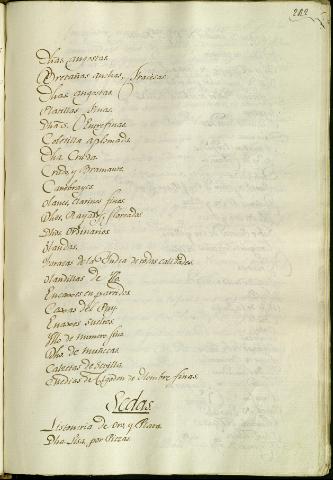 212
Dhas angostas
Bretañas anchas, Francesas
Dhas angostas
Platillas finas
Dhas Entrefinas
Coletilla aplomada
Dha Cruda
Crudo y Bramante
Cambrayes
Olanes, Clarines finos
Dhos, Rayados, floreados
Dhos ordinarios
Olandas
Zarazas de la India de todas calidades
Olandillas de
Encaxes en partidos
Caxas del Puy
Encaxes sueltos
Hilo de numero fino
Dho de muñecas
Calcetas de Sevilla
Medias de Algodon de Hombre finas
Sedas
Listoneria de oro y Plata
Dha Lisa, por Piezas